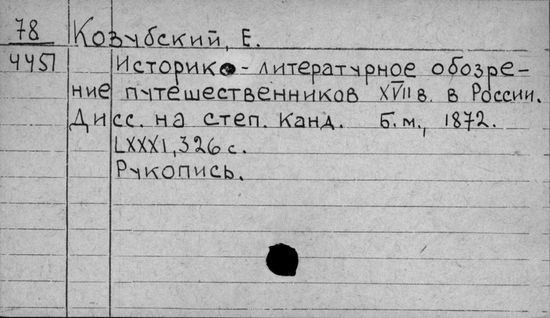 78 Козубский, Е.
4451 Историко-литературное обозре-
ние путешественников XVII в. в России.
Дисс. на степ. канд. б.м., 1872.
LXXXI, 326 с.
Рукопись.